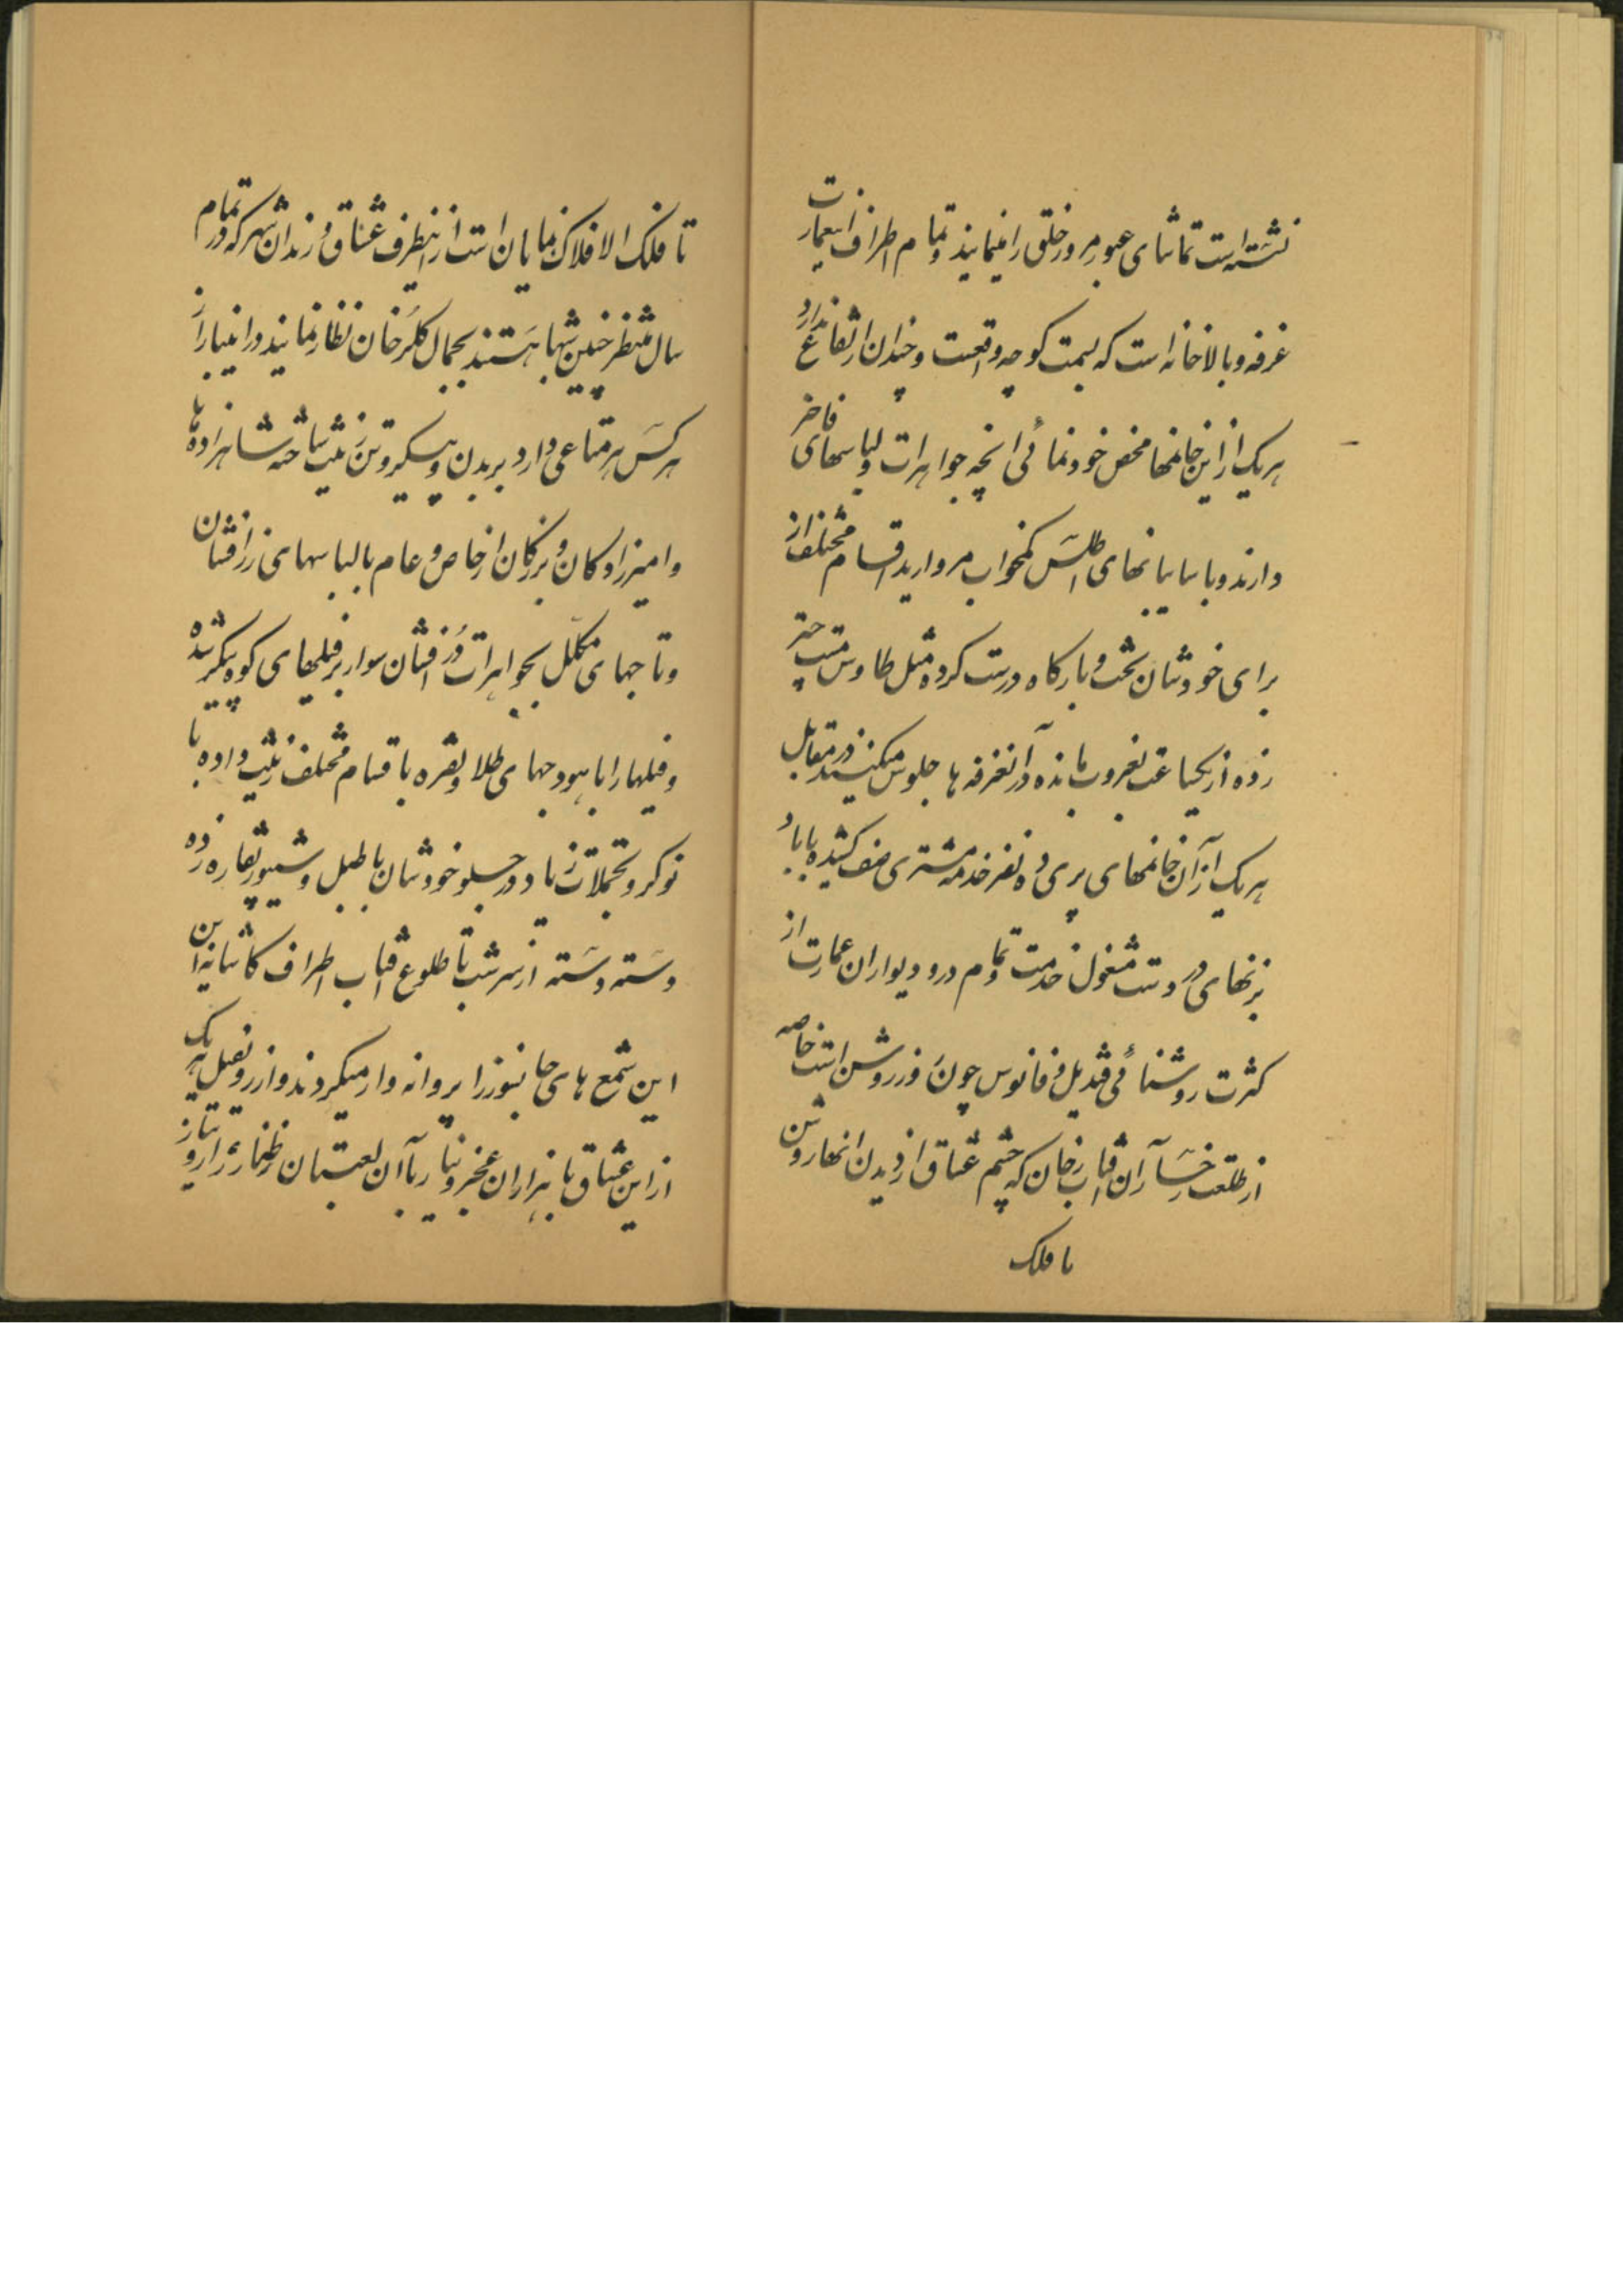 نشسته است تماشای عبور و مرور خلق را مینمایند و تمام اطراف اینعمارت
غرفه و بالاخانه است که بسمت کوچه واقعست و چندان ارتفاع ندارد
هر یک از این خانمها محض خودنمائی انچه جواهرات و لباسهای فاخر
دارند و با سایبانهای اطلس کمخواب مروارید اقسام مختلف از
برای خودشان تخت و بارگاه درست کرده مثل طاوس مست چتر
زده از یکساعت بغروب مانده در آنغرفه ها جلوس میکنند در مقابل
هر یک از آن خانمهای پری ده نفر خدمه مشتری صف کشیده با باد
بزنهای در دست مشغول خدمت و تمام در و دیوار ان عمارت از
کثرت روشنائی قندیل و فانوس چون روز روشن است خاصه
از طلعت رخسار آن آفتاب رخان که چشم عشاق از دیدن انها روشن
تا فلک
تا فلک الافلاک نمایان است از اینطرف عشاق و رندان شهر که در تمام
سال منتظر چنین شبها هستند بجمال گلرخان نظاره نمایند در انشبها از
هر کس هر متاعی دارد بر بدن و پیکر و تن زینت ساخته شاهزاده ها
و امیرزادگان و بزرگان از خاص و عام با لباسهای زرافشان
و تاجهای مکلل بجواهرات دُرافشان سوار بر فیلهای کوه پیکر شده
و فیلها را با هودجهای طلا و نقره باقسام مختلف زینت داده با
نوکر و تجملات زیاد در جلو خودشان با طبل و شیپور نقاره زده
دسته دسته از سر شب تا طلوع آفتاب اطراف کاشانه این
این شمع های جانسوز را پروانه وار میگردند و از رو نقیل هر یک
از این عشاق با هزاران عجز و نیاز با آن لعبتان طناز راز و نیاز